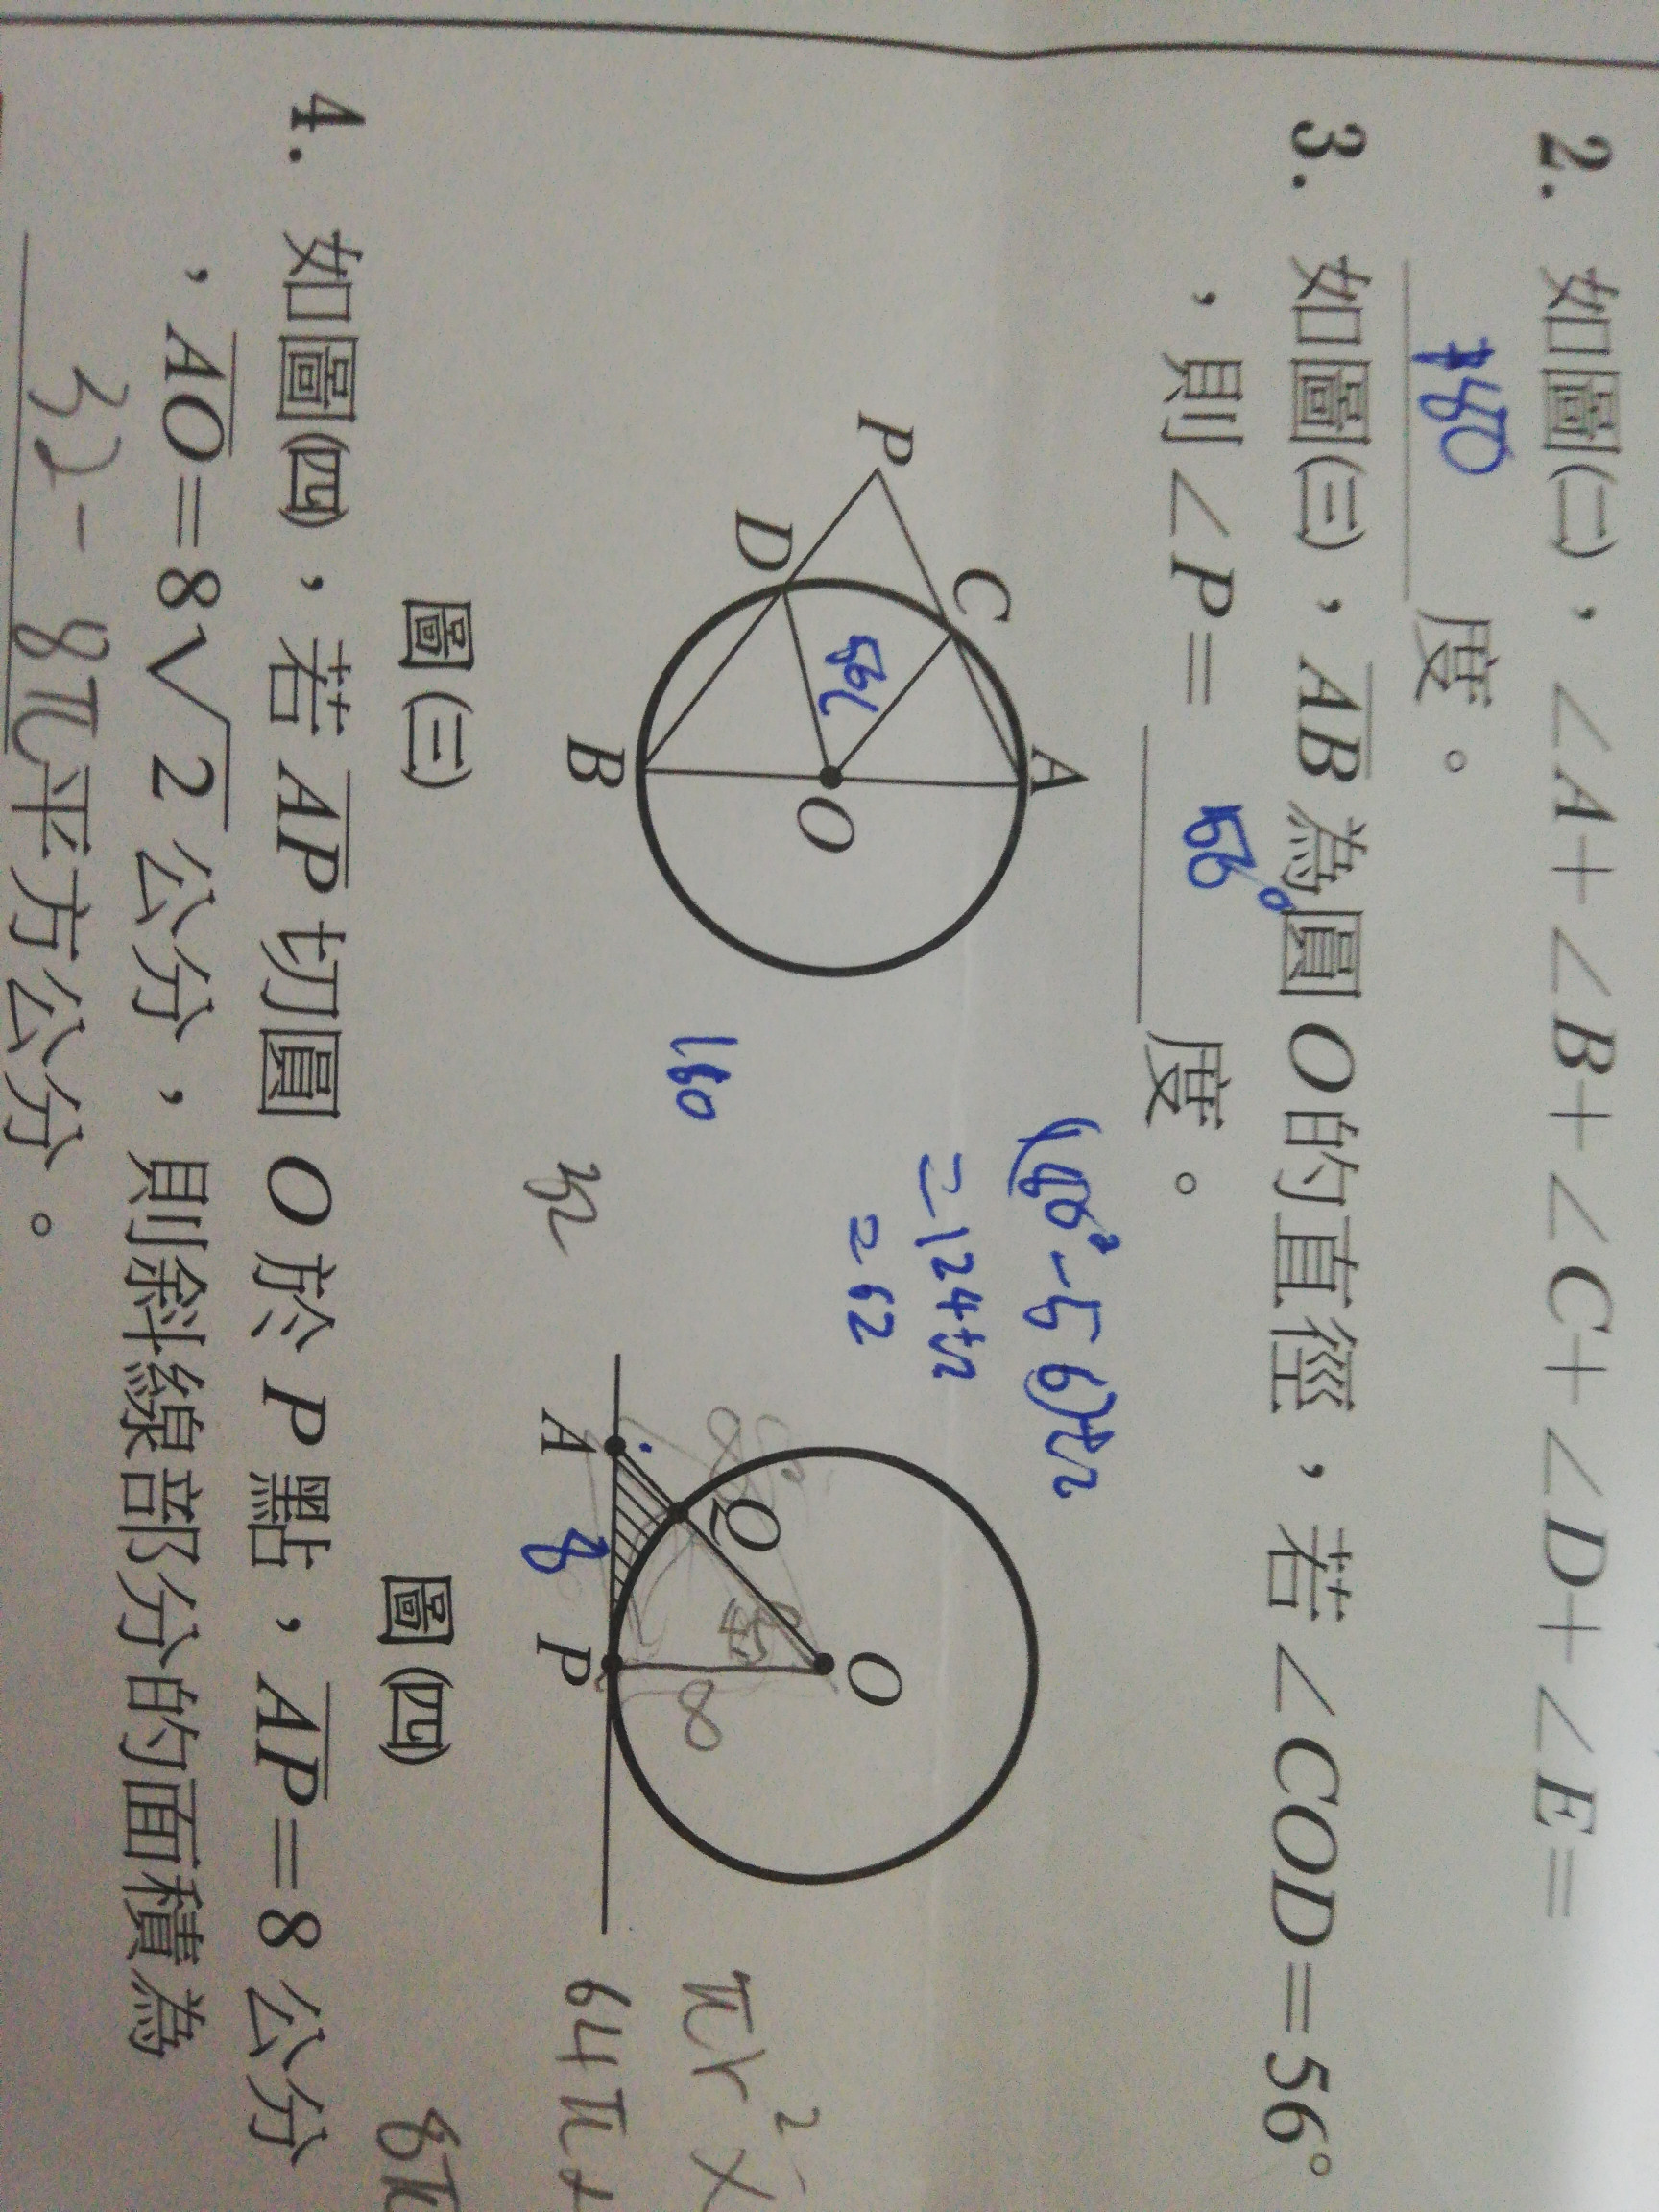 2. 如圖(二)，∠A+∠B+∠C+∠D+∠E=
180 度。
3. 如圖(三)，AB為圓O的直徑，若∠COD=56°
，則∠P= 56° 度。
(180°-56)÷2
=124÷2
=62
P
C
A
D
O
B
56
180
圖(三)
O
Q
A
P
45
8
8
32
πr²×
64π×
8π
圖(四)
4. 如圖(四)，若AP切圓O於P點，AP=8公分
，AO=8√2公分，則斜線部分的面積為
32-8π平方公分。